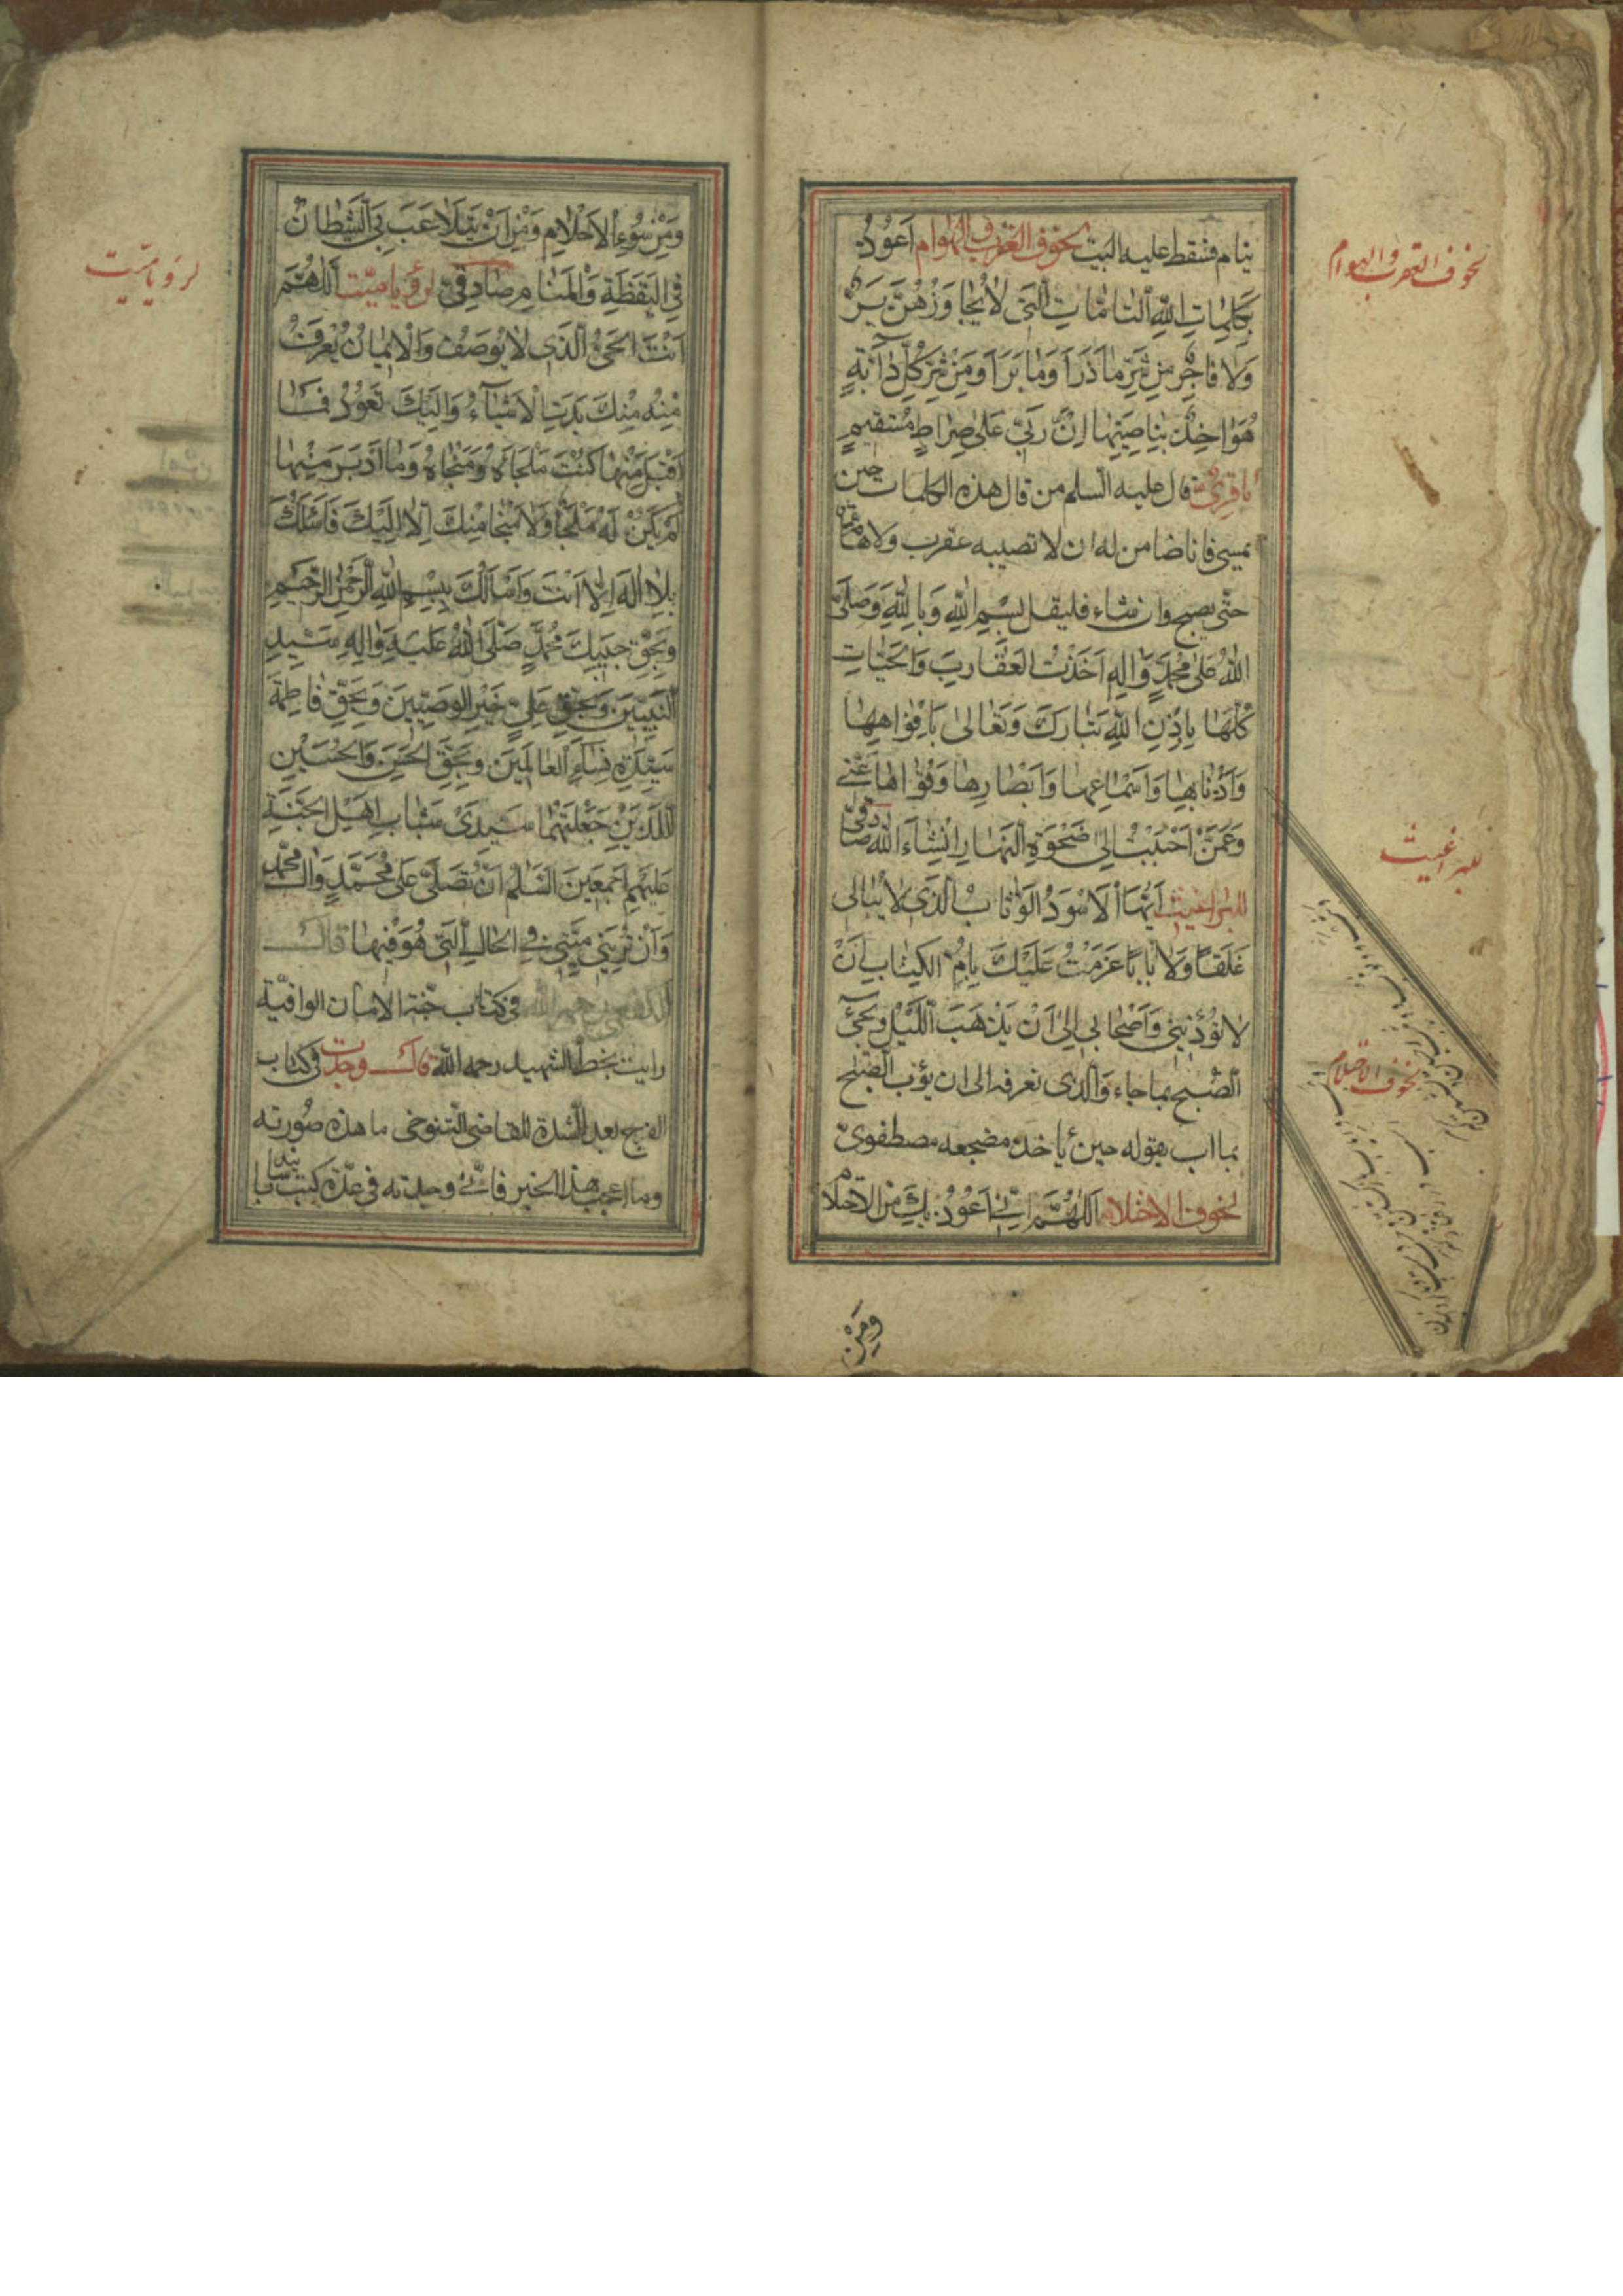 ينام فسقط عليه البيت لخوف العقرب والهوام اَعُوذُ
بِكَلِمَاتِ اللهِ التَّامَّاتِ الَّتِي لَا يُجَاوِزُهُنَّ بَرٌّ
وَلَا فَاجِرٌ مِنْ شَرِّ مَا ذَرَأَ وَمَا بَرَأَ وَمِنْ شَرِّ كُلِّ دَآبَّةٍ
هُوَ اٰخِذٌ بِنَاصِيَتِهَا اِنَّ رَبِّي عَلٰى صِرَاطٍ مُسْتَقِيمٍ
باقري قال عليه السلم من قال هذه الكلمات حين
يمسي فانا ضامن له ان لا تصيبه عقرب ولا هامة
حتى يصبح وان شاء فليقل بِسْمِ اللهِ وَبِاللهِ وَصَلَّى
اللهُ عَلٰى مُحَمَّدٍ وَاٰلِهِ اَخَذْتُ الْعَقَارِبَ وَالْحَيَّاتِ
كُلَّهَا بِاِذْنِ اللهِ تَبَارَكَ وَتَعَالٰى بِاَفْوَاهِهَا
وَاَذْنَابِهَا وَاَسْمَاعِهَا وَاَبْصَارِهَا وَقُوَاهَا عَنِّي
وَعَمَّنْ اَحْبَبْتُ اِلٰى ضَحْوَةِ النَّهَارِ اِنْشَآءَ اللهُ صادقي
للبراغيث اَيُّهَا الْاَسْوَدُ الْوَثَّابُ الَّذِي لَا يُبَالِي
غَلَقًا وَلَا بَابًا عَزَمْتُ عَلَيْكَ بِاُمِّ الْكِتَابِ اَنْ
لَا تُؤْذِيَنِي وَاَصْحَابِي اِلٰى اَنْ يَذْهَبَ اللَّيْلُ وَيَجِيْءَ
الصُّبْحُ بما جاء وَالذى نعرفه الى ان يؤب الصُّبح
بما اب يقوله حين يأخذ مضجعه مصطفوى
لخوف الاحتلام اَللّٰهُمَّ اِنِّي اَعُوذُ بِكَ مِنَ الْاِحْتِلَامِ
وَمِنْ
لخوف العقرب والهوام
للبراغيث
لخوف الاحتلام
وَمِنْ سُوءِ الْاَحْلَامِ وَمِنْ اَنْ يَتَلَاعَبَ بِيَ الشَّيْطَانُ
فِي الْيَقَظَةِ وَالْمَنَامِ صادقي لرؤيا ميّت اَللّٰهُمَّ
اَنْتَ الْحَيُّ الَّذِي لَا يُوصَفُ وَالْاِيمَانُ يُعْرَفُ
مِنْهُ مِنْكَ بَدَتِ الْاَشْيَآءُ وَاِلَيْكَ تَعُودُ فَمَا
اَقْبَلَ مِنْهَا كُنْتَ مَلْجَاَهُ وَمَنْجَاهُ وَمَا اَدْبَرَ مِنْهَا
لَمْ يَكُنْ لَهُ مَلْجَأٌ وَلَا مَنْجَا مِنْكَ اِلَّا اِلَيْكَ فَاَسْئَلُكَ
بِلَا اِلٰهَ اِلَّا اَنْتَ وَاَسْاَلُكَ بِبِسْمِ اللهِ الرَّحْمٰنِ الرَّحِيمِ
وَبِحَقِّ حَبِيبِكَ مُحَمَّدٍ صَلَّى اللهُ عَلَيْهِ وَاٰلِهِ سَيِّدِ
النَّبِيِّينَ وَبِحَقِّ عَلِيٍّ خَيْرِ الْوَصِيِّينَ وَبِحَقِّ فَاطِمَةَ
سَيِّدَةِ نِسَاءِ الْعَالَمِينَ وَبِحَقِّ الْحَسَنِ وَالْحُسَيْنِ
الَّذَيْنِ جَعَلْتَهُمَا سَيِّدَيْ شَبَابِ اَهْلِ الْجَنَّةِ
عَلَيْهِمْ اَجْمَعِينَ السَّلٰمُ اَنْ تُصَلِّيَ عَلٰى مُحَمَّدٍ وَاٰلِ مُحَمَّدٍ
وَاَنْ تُرِيَنِي مَيِّتِي فِي الْحَالِ الَّتِي هُوَ فِيهَا قال
الكفعمي رحمه الله فى كتاب جنّة الامان الواقية
رايت بخط الشهيد رحمه الله قال وجدت فى كتاب
الفرج بعد الشدة للقاضى التنوخى ما هذه صُورته
وما اعجب هذا الخبر فانّى وجدته فى عدّة كتب باسانيد
لرؤيا ميّت